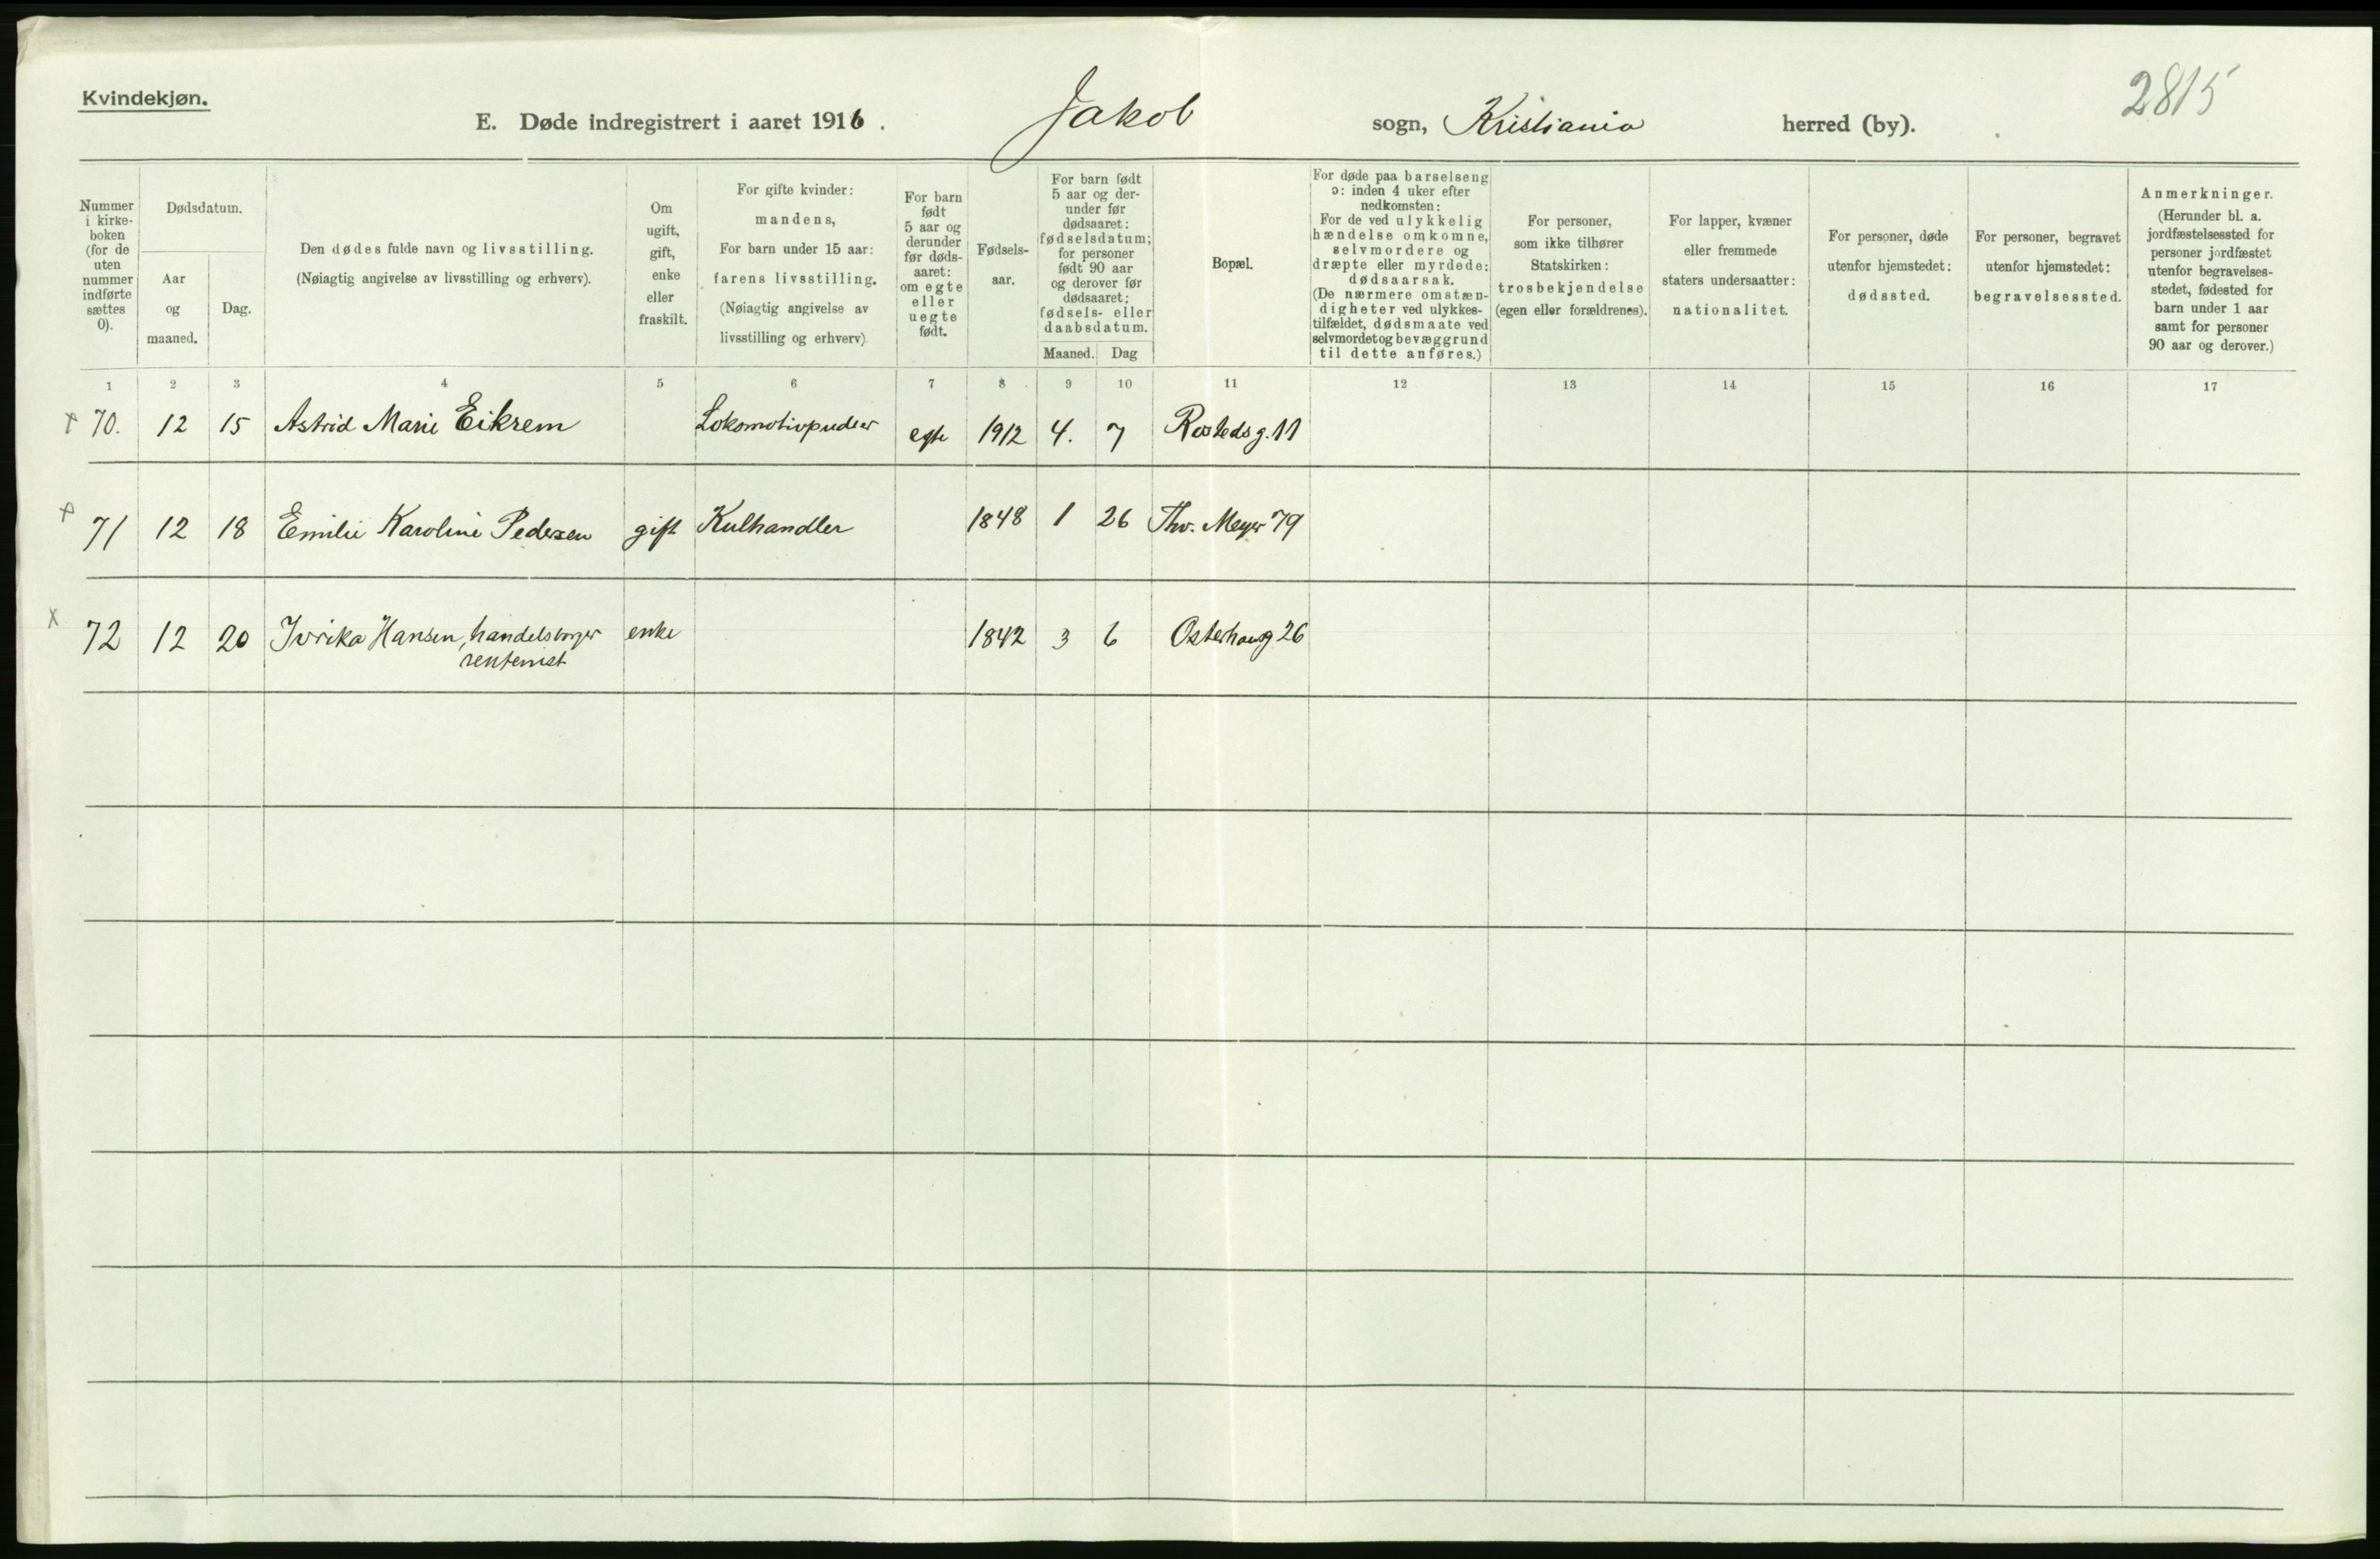 Kvindekjøn.
E. Døde indregistrert i aaret 1916.
Jakob
sogn, Kristiania herred (by).
2815
Nummer
i kirke-
boken
(for de
uten
nummer
indførte
sættes
0).
Dødsdatum.
Aar
og
maaned.
Dag.
Den dødes fulde navn og livsstilling.
(Nøiagtig angivelse av livsstilling og erhverv).
Om
ugift,
gift,
enke
eller
fraskilt.
For gifte kvinder:
mandens,
For barn under 15 aar:
farens livsstilling.
(Nøiagtig angivelse av
livsstilling og erhverv)
For barn
født
5 aar og
derunder
før døds-
aaret:
om egte
eller
uegte
født.
Fødsels-
aar.
For barn født
5 aar og der-
under før
dødsaaret:
fødselsdatum;
for personer
født 90 aar
og derover før
dødsaaret:
fødsels- eller
daabsdatum.
Maaned. Dag
Bopæl.
For døde paa barselseng
ɔ: inden 4 uker efter
nedkomsten:
For de ved ulykkelig
hændelse omkomne,
selvmordere og
dræpte eller myrdede:
dødsaarsak.
(De nærmere omstæn-
digheter ved ulykkes-
tilfældet, dødsmaate ved
selvmordet og bevæggrund
til dette anføres.)
For personer,
som ikke tilhører
Statskirken:
trosbekjendelse
(egen eller forældrenes).
For lapper, kvæner
eller fremmede
staters undersaatter:
nationalitet.
For personer, døde
utenfor hjemstedet:
dødssted.
For personer, begravet
utenfor hjemstedet:
begravelsessted.
Anmerkninger.
(Herunder bl. a.
jordfæstelsessted for
personer jordfæstet
utenfor begravelses-
stedet, fødested for
barn under 1 aar
samt for personer
90 aar og derover.)
1 2 3 4 5 6 7 8 9 10 11 12 13 14 15 16 17
x 70. 12 15 Astrid Marie Eikrem Lokomotivpudser egte 1912 4. 7 Rostedsg. 11
x 71 12 18 Emilie Karoline Pedersen gift Kulhandler 1848 1 26 Thv. Meyer 79
x 72 12 20 Ivrika Hansen, handelsborger enke 1842 3 6 Osterhausg 26
rentenist